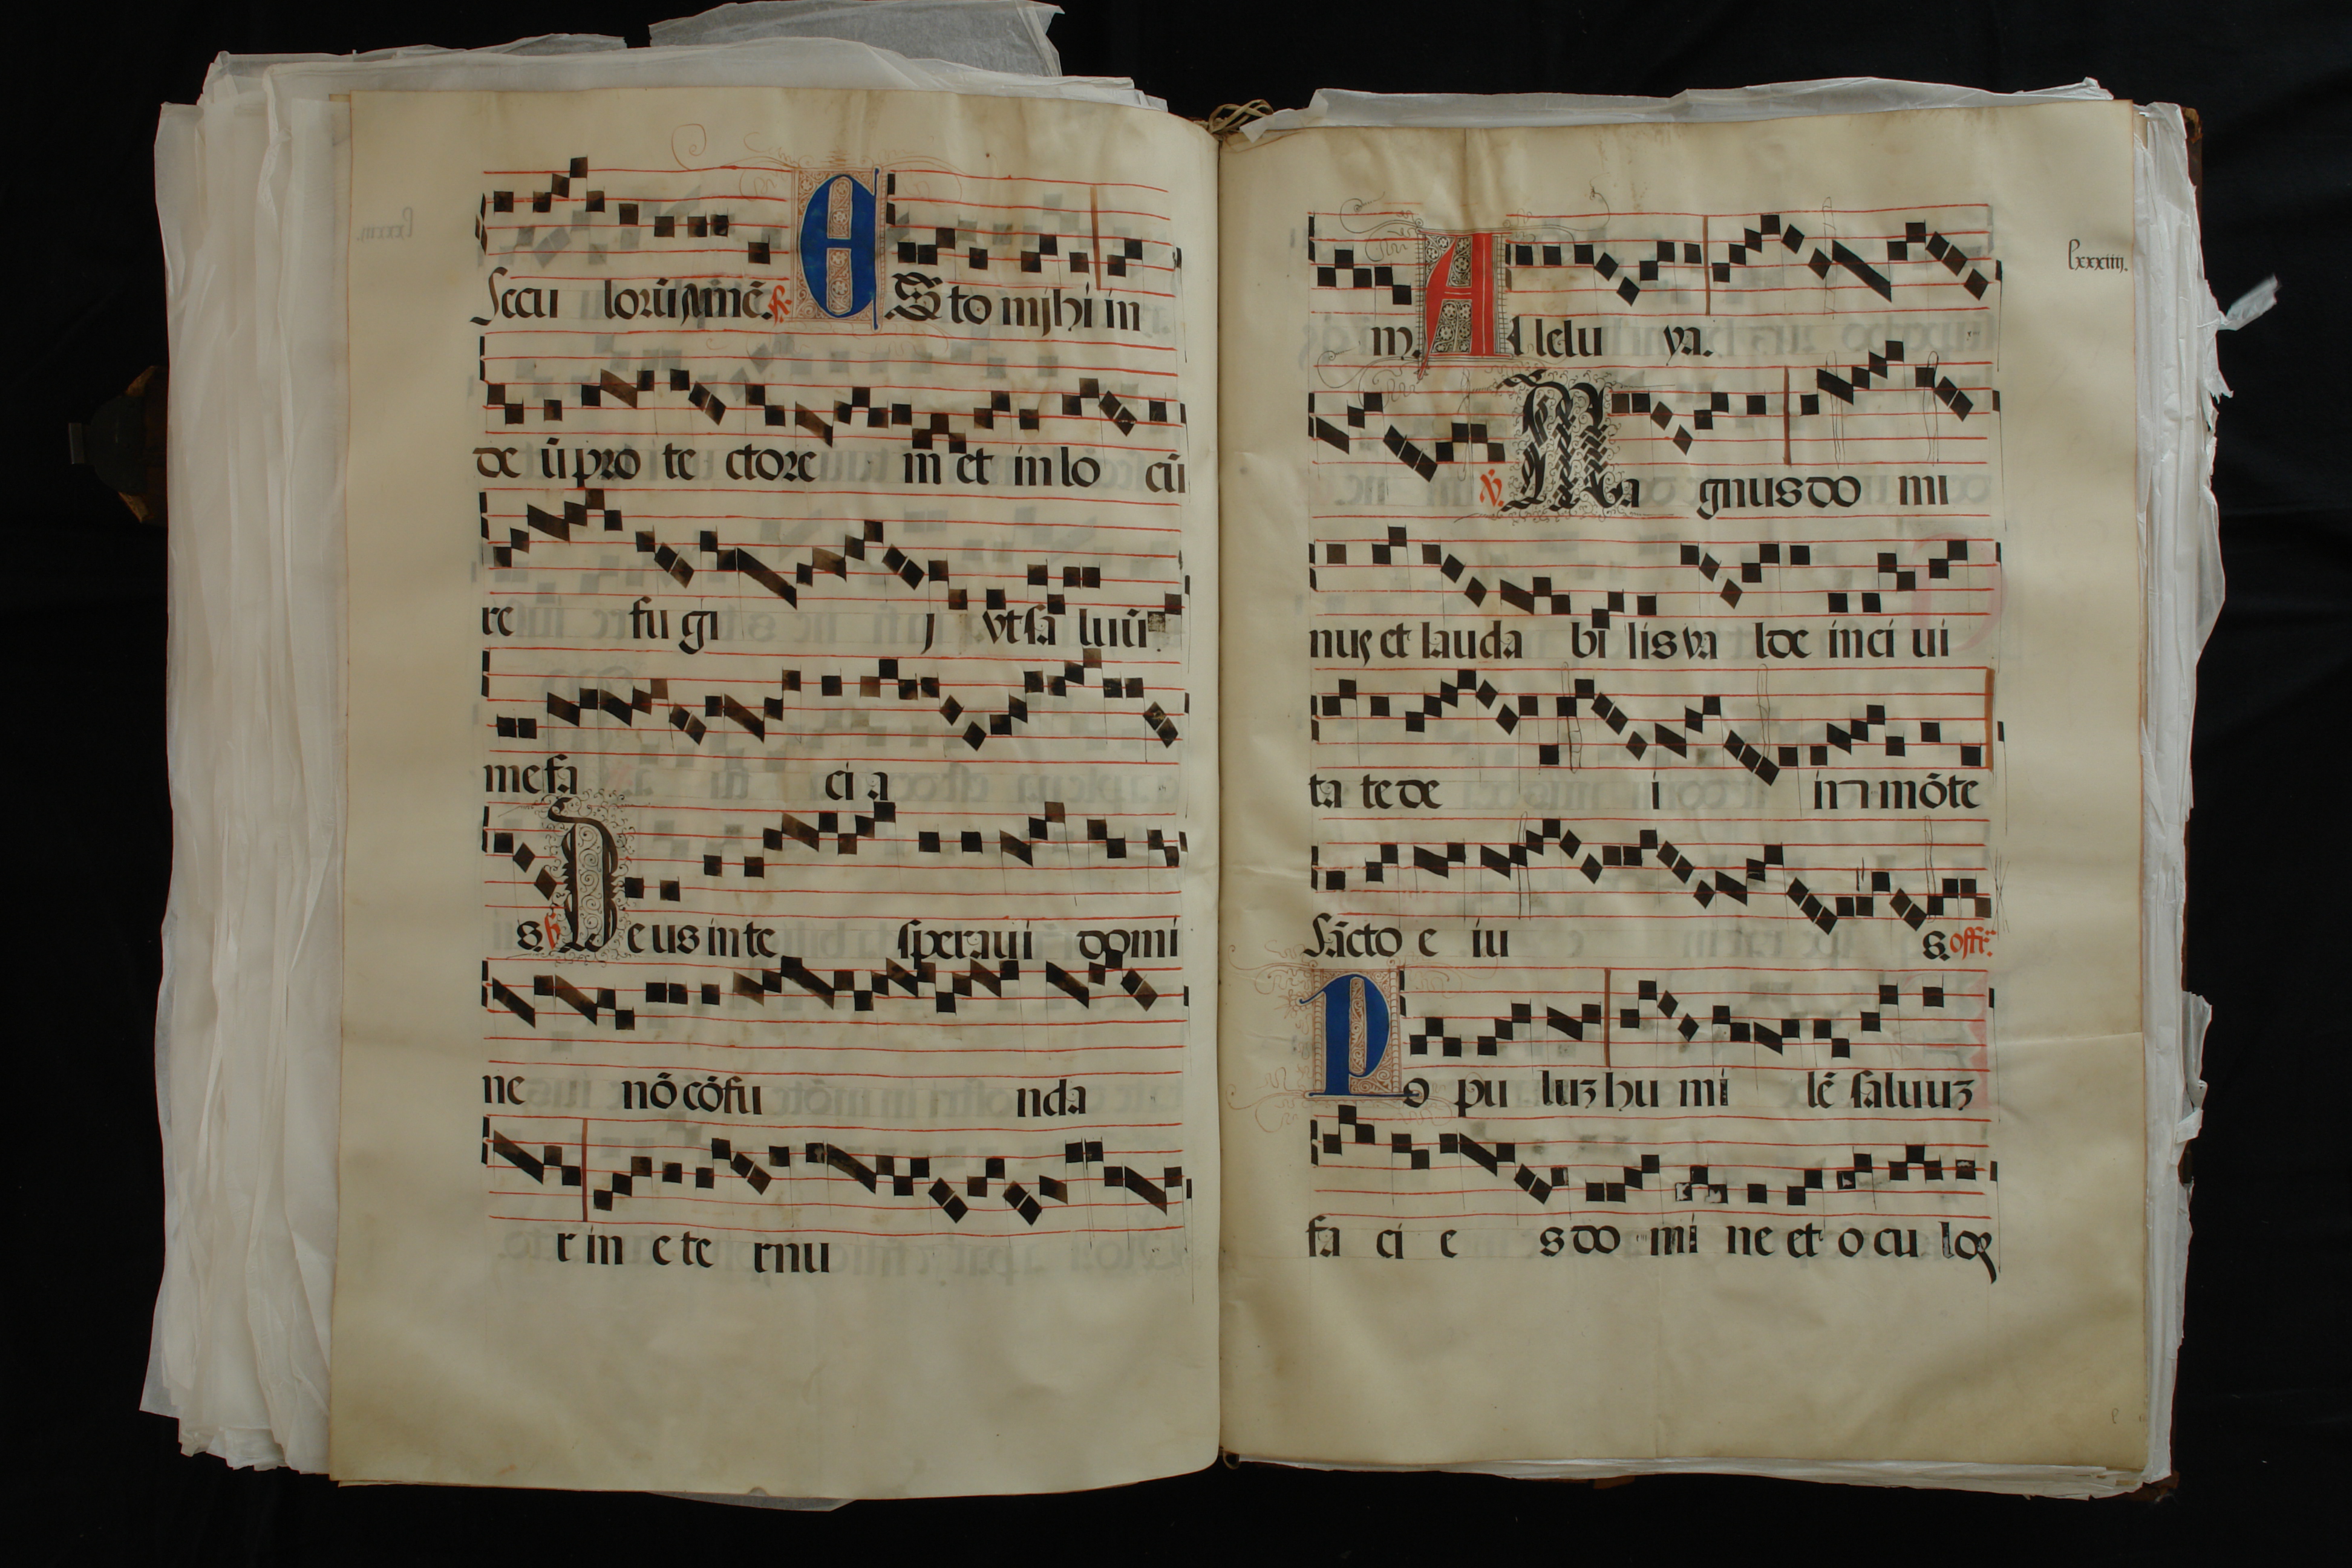 Secu lorū amē. ℟. ESto mihi in
de ū pro te ctore m et in lo cū
re fu gi j vt sa luū
me fa ci a
s. ℣. Deus in te speraui domi
ne nō cōfu nda
r in e te rnu
lxxxiiij.
m. Allelu ya.
℣. Ma gnus do mi
nus et lauda bi lis va lde in ci ui
ta te de i in mōte
sācto e iu s. offr̄.
Po pu luz hu mi lē saluuz
fa ci e s do mi ne et o cu loꝝ